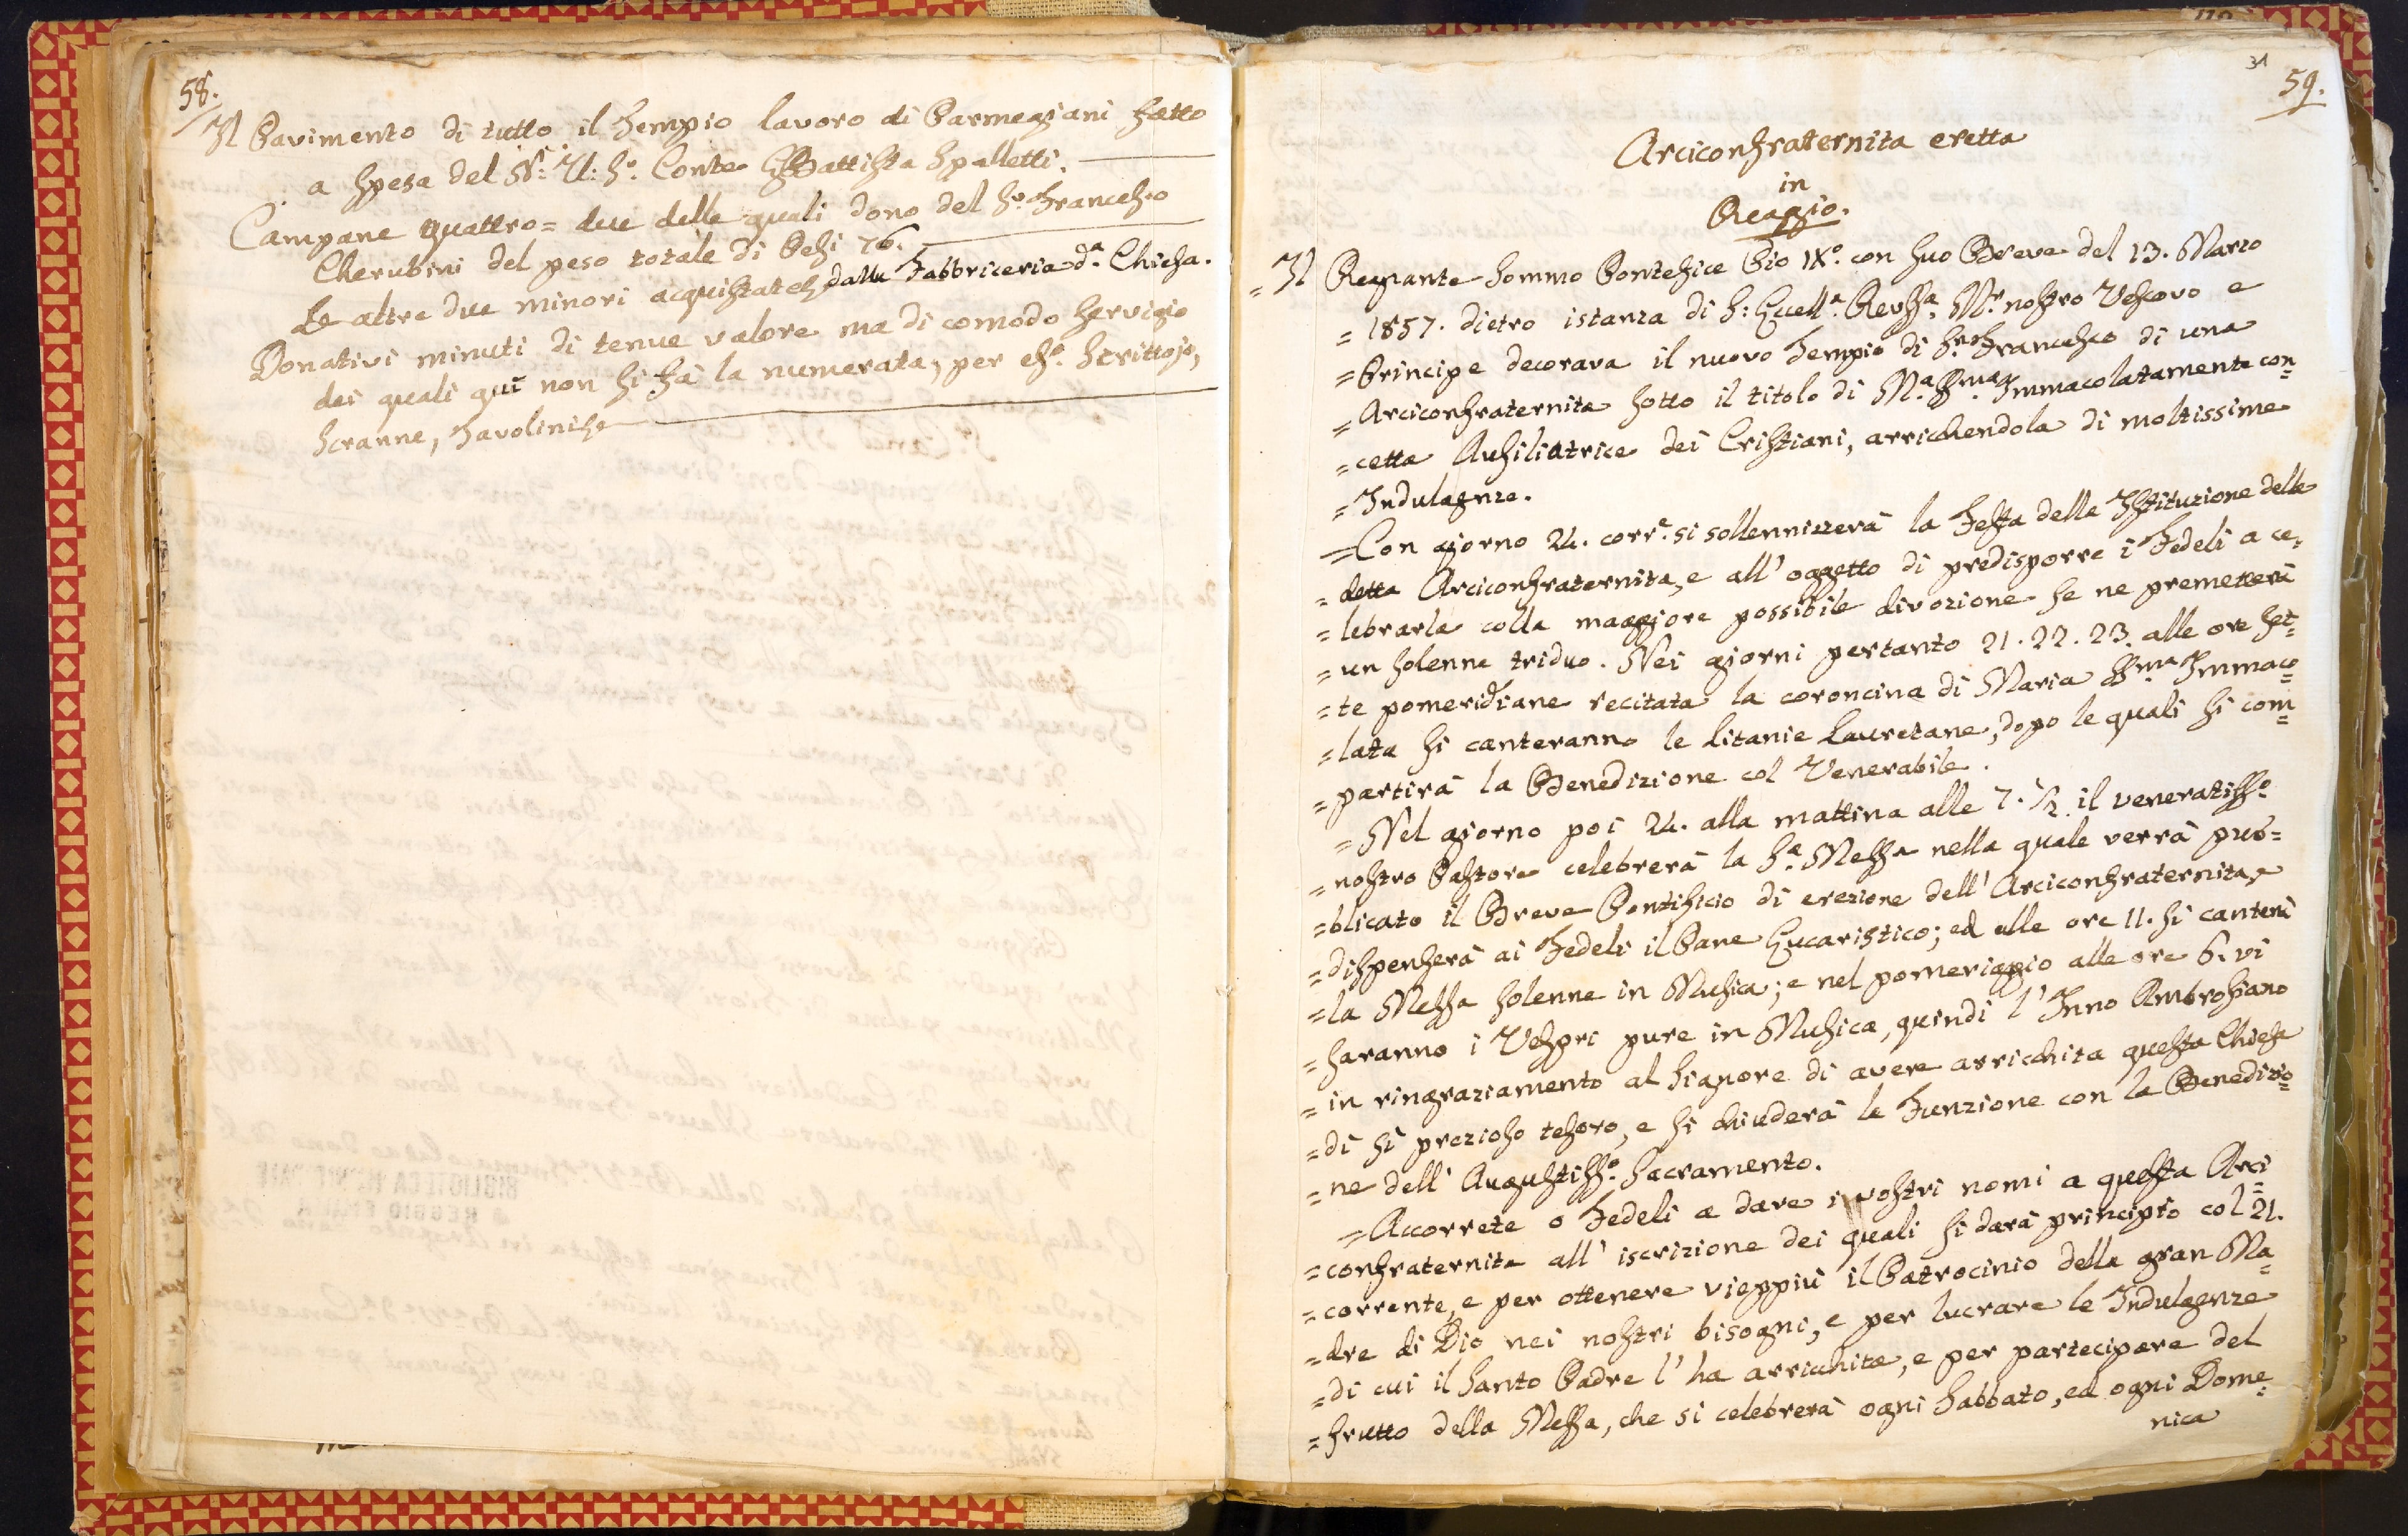 58.
Il Pavimento di tutto il Tempio lavoro di Parmegiani fatto
a spesa del N: U: Sr. Conte GBattista Spalletti.
Campane quattro = due delle quali dono del Sr. Francesco
Cherubini del peso totale di Pesi 76.
Le altre due minori acquistate dalla Fabbriceria da. Chiesa.
Donativi minuti di tenue valore ma di comodo servigio
dei quali qui non si fà la numerata, per eso. Scrittojo,
Scranne, Tavolini
31
59.
Arciconfraternita eretta
in
Reggio.
= Il Regnante Sommo Pontefice Pio IXo. con suo Breve del 13. Marzo
= 1857. dietro istanza di S: Eccella. Revssa. Mr. nostro Vescovo e
= Principe decorava il nuovo Tempio di Sn. Francesco di una
= Arciconfraternita sotto il titolo di Ma. SSma. Immacolatamente con=
= cetta Ausiliatrice dei Cristiani, arrichendola di moltissime
= Indulgenze.
= Con giorno 24. corre. si sollennizzerà la Festa della Istituzione della
= detta Arciconfraternita, e all' oggetto di predisporre i Fedeli a ce=
= lebrarla colla maggiore possibile divozione se ne premetterà
= un solenne triduo. Nei giorni pertanto 21. 22. 23. alle ore set=
= te pomeridiane recitata la coroncina di Maria SSma Immaco=
= lata si canteranno le Litanie Lauretane, dopo le quali si com=
= partirà la Benedizione col Venerabile.
= Nel giorno poi 24. alla mattina alle 7. 1/2 il veneratisso.
= nostro Pastore celebrerà la Sa. Messa nella quale verrà pub=
= blicato il Breve Pontificio di erezione dell' Arciconfraternita, e
= dispenserà ai Fedeli il Pane Eucaristico; ed alle ore 11. si canterà
= la Messa solenne in Musica; e nel pomeriggio alle ore 6. vi
= saranno i Vespri pure in Musica, quindi l' Inno Ambrosiano
= in ringraziamento al Signore di avere arricchita questa Chiesa
= di sì prezioso tesoro, e si chiuderà la Funzione con la Benedizio=
= ne dell' Augustisso. Sacramento.
= Accorrete o Fedeli a dare i vostri nomi a questa Arci=
= confraternita all' iscrizione dei quali si darà principio col 21.
= corrente, e per ottenere vieppiù il Patrocinio della gran Ma=
= dre di Dio nei nostri bisogni, e per lucrare le Indulgenze
= di cui il Santo Padre l' ha arricchita, e per partecipare del
= frutto della Messa, che si celebrerà ogni Sabbato, ed ogni Dome=
nica